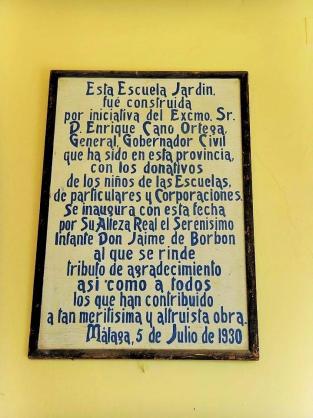 Esta Escuela Jardin,
fué construida
por iniciativa del Excmo. Sr.
D. Enrique Cano Ortega,
General, Gobernador Civil
que ha sido en esta provincia,
con los donativos
de los niños de las Escuelas,
de particulares y Corporaciones.
Se inaugura con esta fecha
por Su Alteza Real el Serenisimo
Infante Don Jaime de Borbon
al que se rinde
tributo de agradecimiento
asi como a todos
los que han contribuido
a tan meritisima y altruista obra.
Málaga, 5 de Julio de 1930